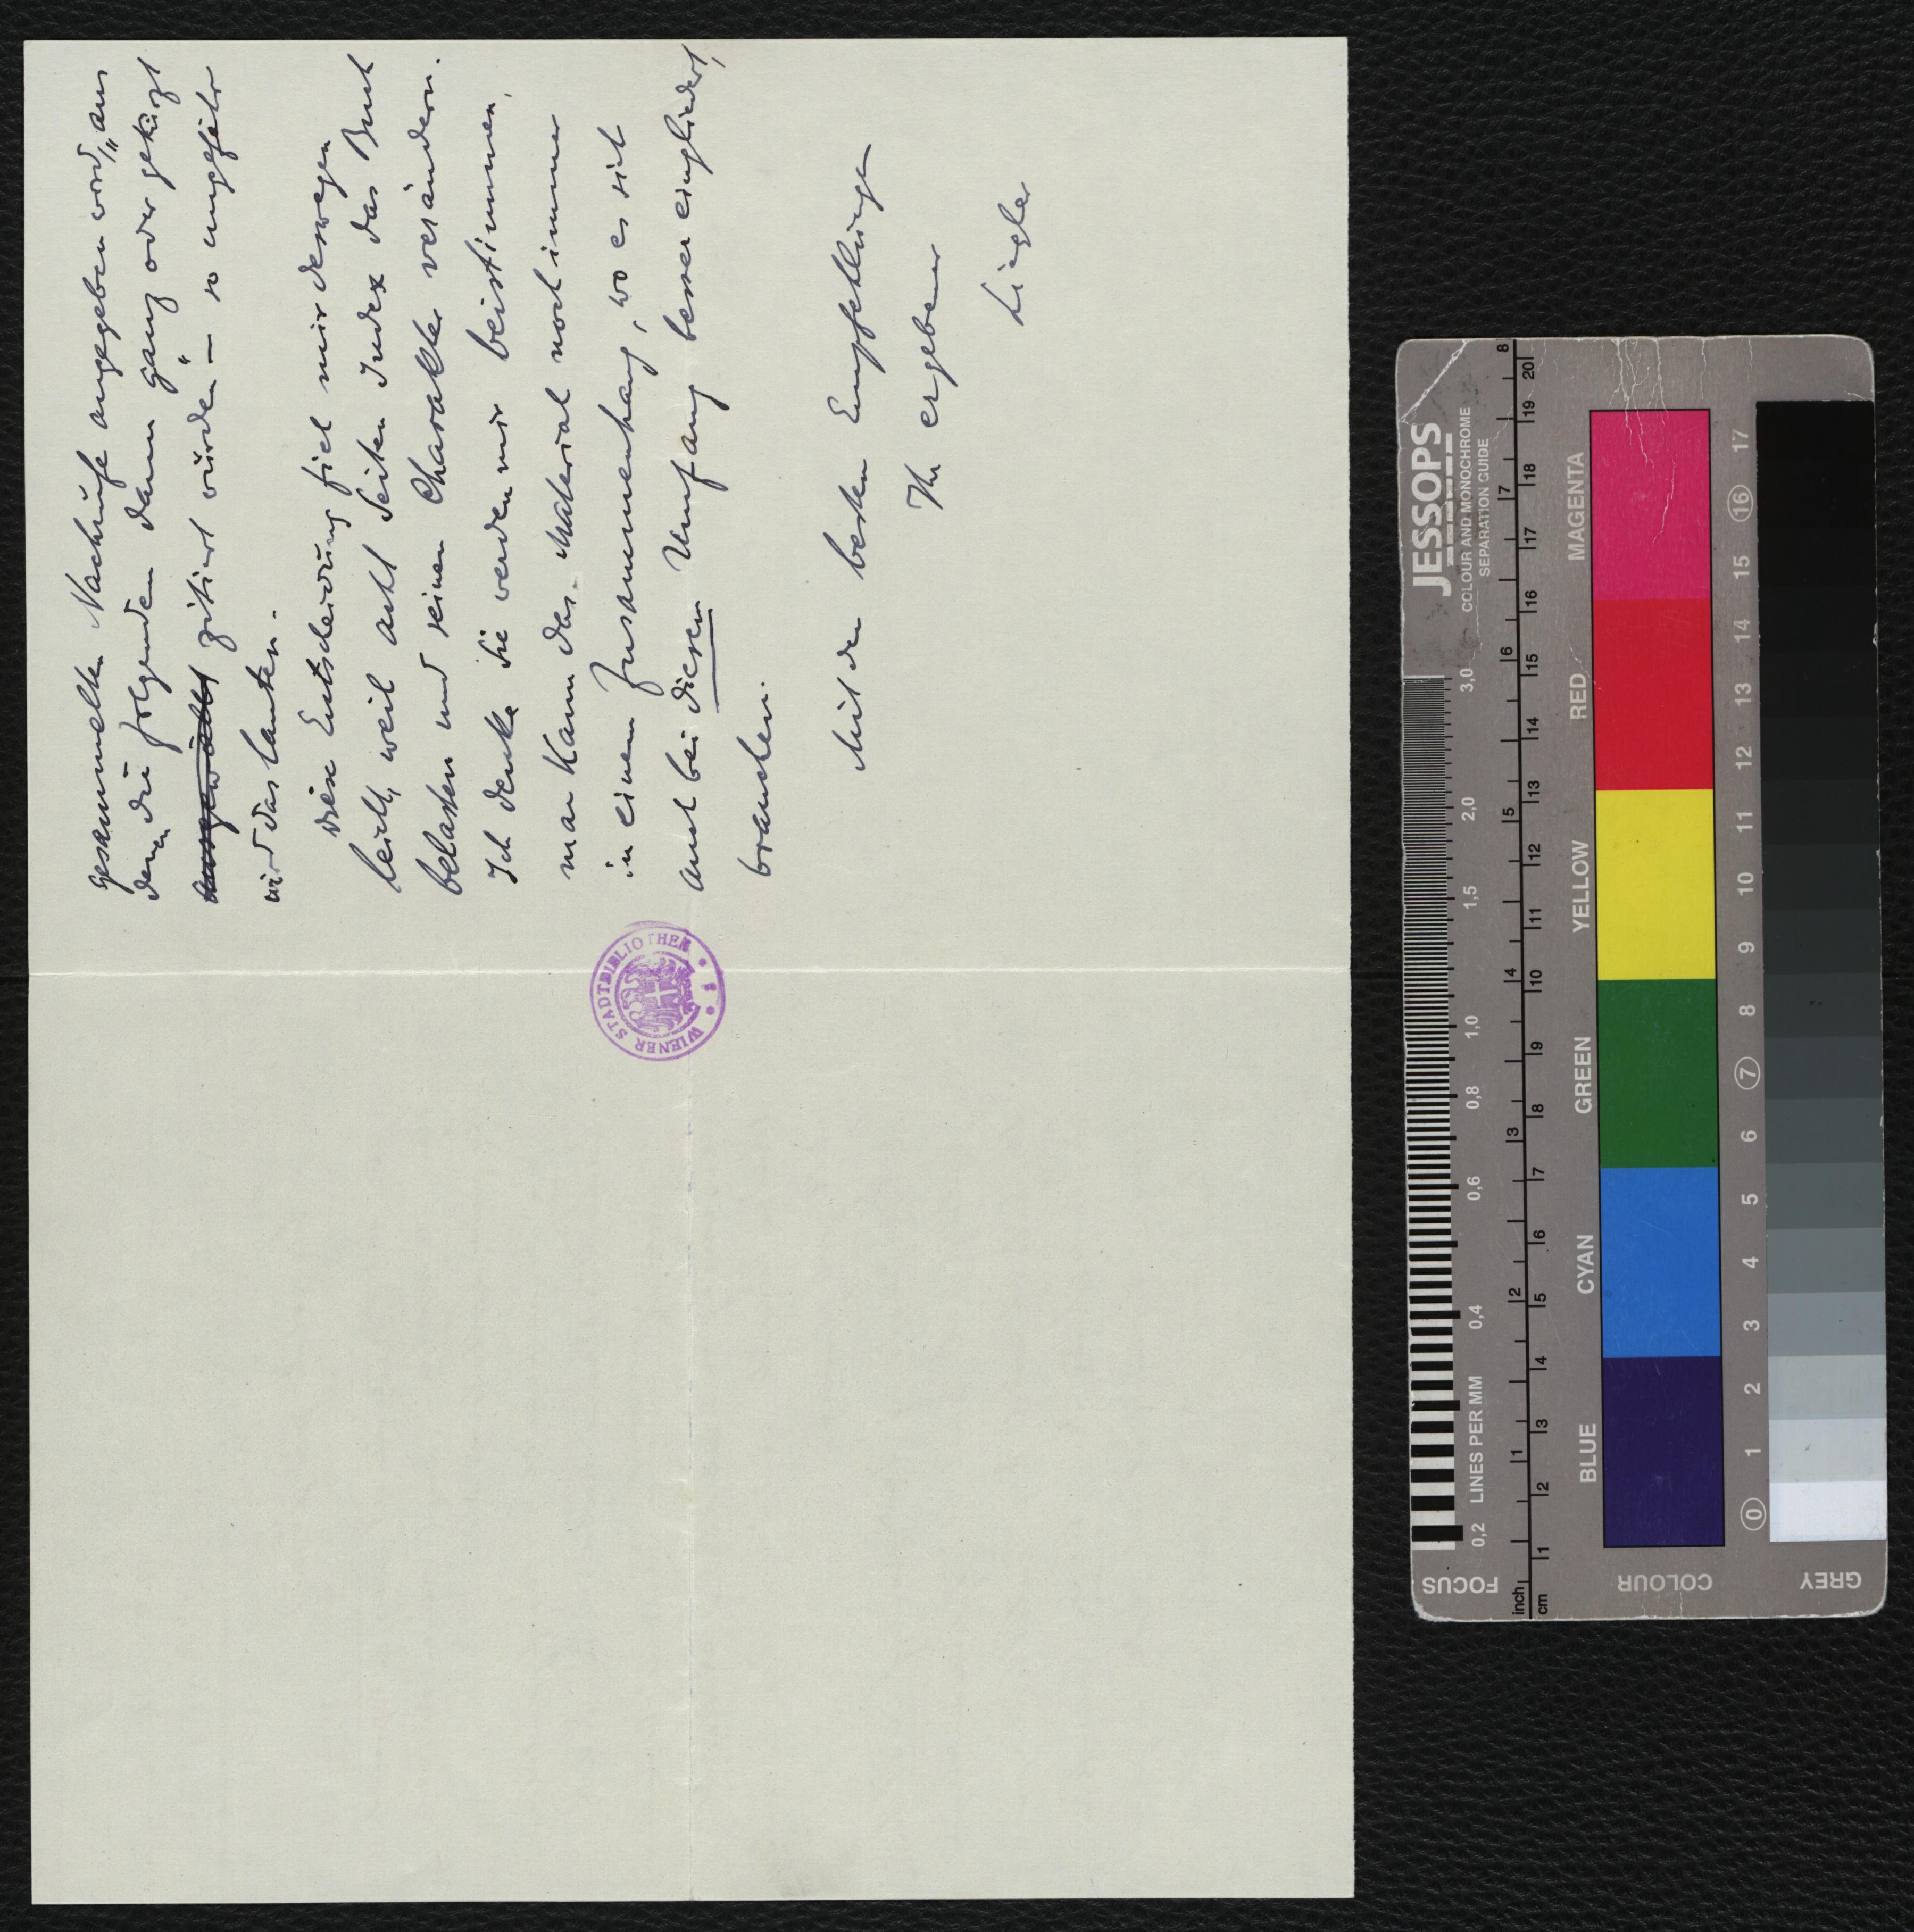 gesammelte Nachrufe angegeben wird, „aus
denen die folgenden dann ganz oder gekürzt
ausgewählt zitiert würden“ — so ungefähr
wird das lauten.
Diese Entscheidung fiel mir deswegen
leicht, weil acht Seiten Index das Buch
belasten und seinen Charakter verändern.
Ich denke Sie werden mir beistimmen,
man kann das Material noch immer
in einem Zusammenhang, wo es sich
auch bei diesem Umfang besser eingliedert,
brauchen.
Mit den besten Empfehlungen
Ihr ergebener
Liegler
WIENER STADTBIBLIOTHEK
JESSOPS
COLOUR AND MONOCHROME
SEPARATION GUIDE
3,0 2,0 1,5 1,0 0,8 0,6 0,4 0,2
LINES PER MM
FOCUS
inch 1 2 3 4 5 6 7 8
cm 1 2 3 4 5 6 7 8 9 10 11 12 13 14 15 16 17 18 19 20
BLUE CYAN GREEN YELLOW RED MAGENTA
COLOUR
0 1 2 3 4 5 6 7 8 9 10 11 12 13 14 15 16 17
GREY